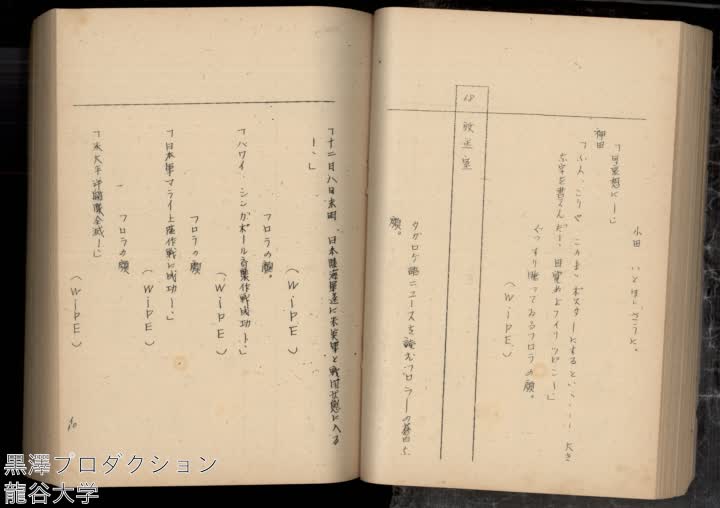 小田 いとほしさうに。
「可哀想に―」
柳田
「ふん、こりや このまゝポスターにするといゝ！― 大き
な字を書くんだ！ 目覚めよフイリツピン―」
ぐつすり眠つてゐるフロラの顔。
（WIPE）
18 放送室
タガログ語ニユースを読むフロラーの
顔。
「十二月八日未明、日本陸海軍遂に米英軍と戦闘状態に入る
―」
（WIPE）
フロラの顔。
「ハワイ、シンガポール奇襲作戦成功！」
（WIPE）
フロラの顔
「日本軍マライ上陸作戦に成功―」
（WIPE）
フロラの顔
「米太平洋艦隊全滅―」
（WIPE）
10
黒澤プロダクション
龍谷大学